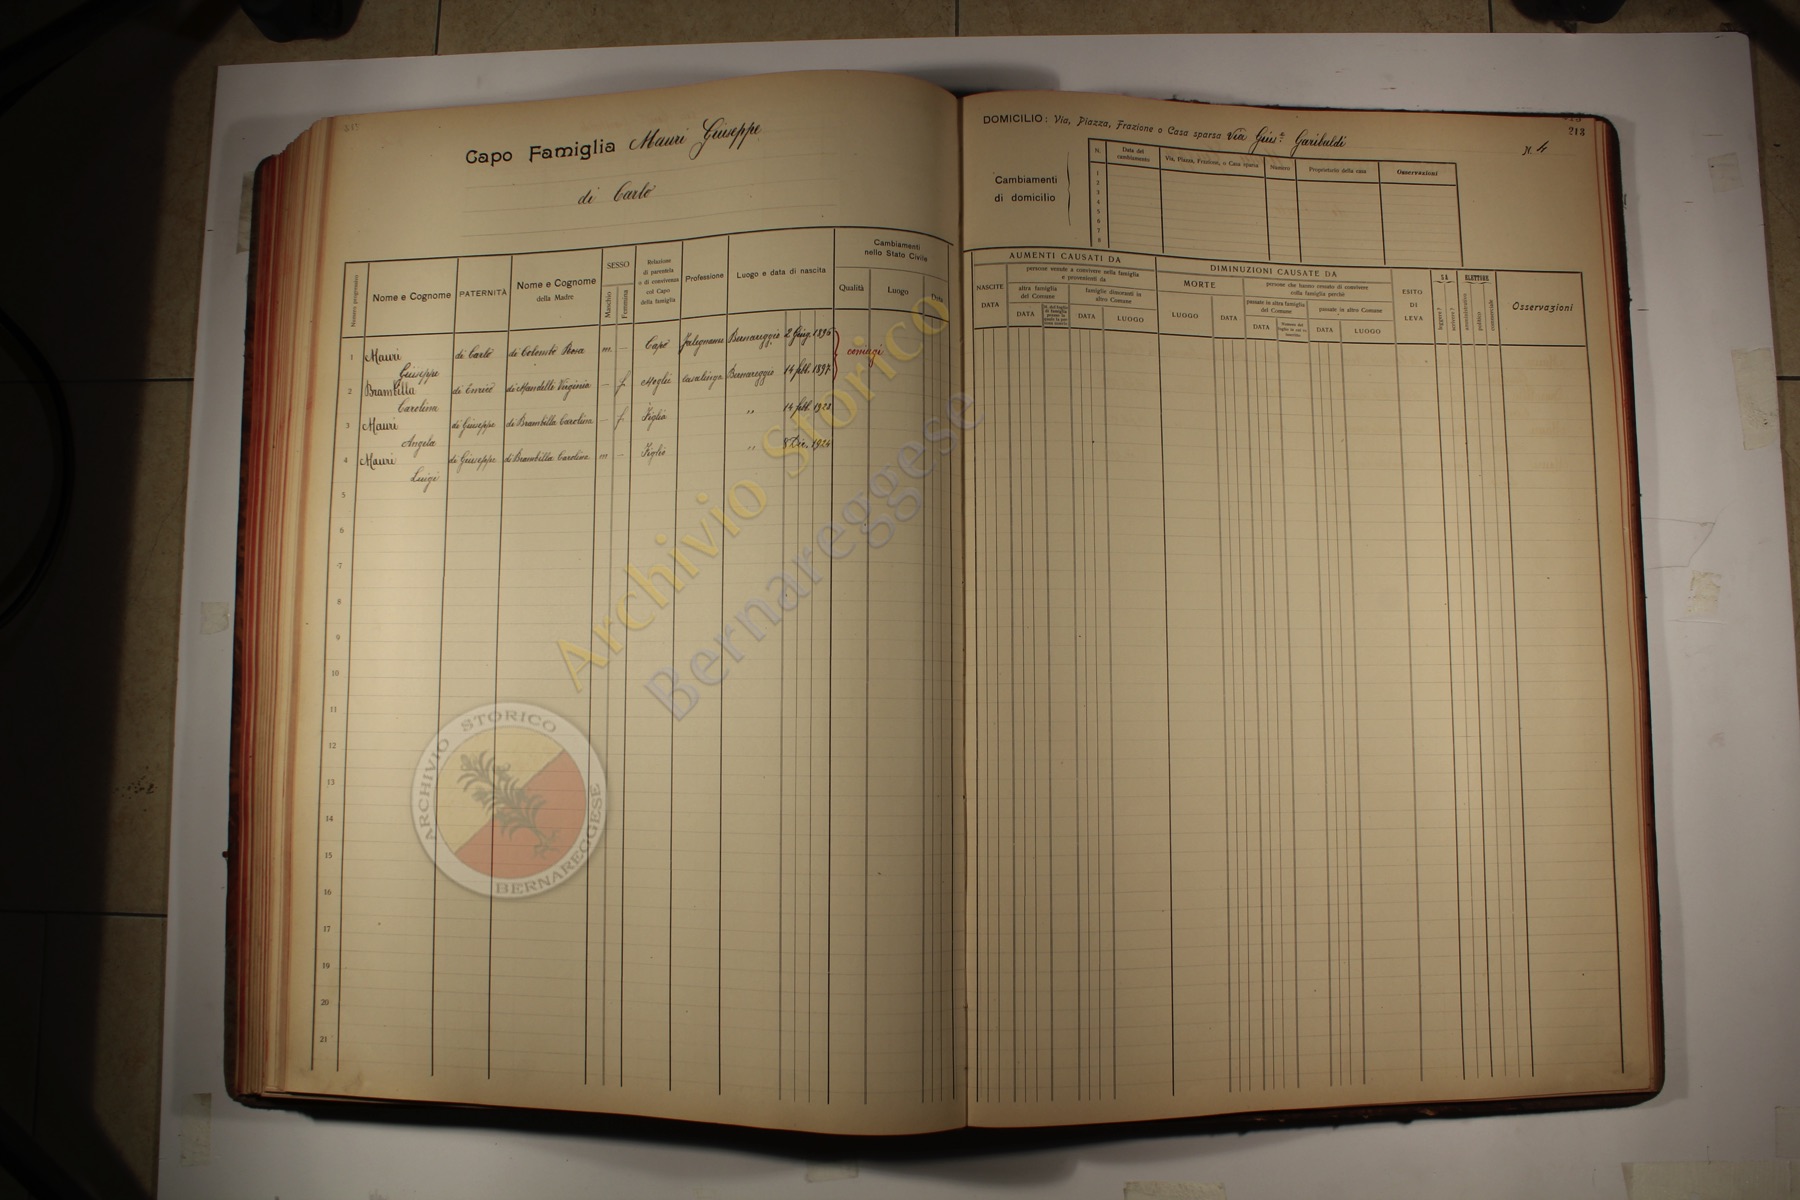 Capo Famiglia Mauri Giuseppe
di Carlo
Numero progressivo
Nome e Cognome
PATERNITÀ
Nome e Cognome
della Madre
SESSO
Maschio
Femmina
Relazione
di parentela
o di convivenza
col Capo
della famiglia
Professione
Luogo e data di nascita
Cambiamenti
nello Stato Civile
Qualità
Luogo
Data
1 Mauri di Carlo di Colombo Rosa m — Capo falegname Bernareggio 2 Giug. 1896 coniugi
Giuseppe
2 Brambilla di Enrico di Mandelli Virginia — f. Moglie casalinga Bernareggio 14 febb. 1897
Carolina
3 Mauri di Giuseppe di Brambilla Carolina — f. Figlia " 14 febb. 1923
Angela
4 Mauri di Giuseppe di Brambilla Carolina m — Figlio " 8 Dic. 1924
Luigi
5
6
7
8
9
10
11
12
13
14
15
16
17
19
20
21
DOMICILIO: Via, Piazza, Frazione o Casa sparsa Via Gius.e Garibaldi
N. 4
213
Cambiamenti
di domicilio
N.
Data del
cambiamento
Via, Piazza, Frazione, o Casa sparsa
Numero
Proprietario della casa
Osservazioni
1
2
3
4
5
6
7
8
AUMENTI CAUSATI DA
NASCITE
DATA
persone venute a convivere nella famiglia
e provenienti da
altra famiglia
del Comune
DATA
famiglie dimoranti in
altro Comune
DATA
LUOGO
DIMINUZIONI CAUSATE DA
MORTE
LUOGO
DATA
persone che hanno cessato di convivere
colla famiglia perchè
passate in altra famiglia
del Comune
DATA
passate in altro Comune
DATA
LUOGO
ESITO
DI
LEVA
SA
leggere?
scrivere?
ELETTORE
amministrativo
politico
commerciale
Osservazioni
Archivio Storico
Bernareggese
ARCHIVIO STORICO
BERNAREGGESE